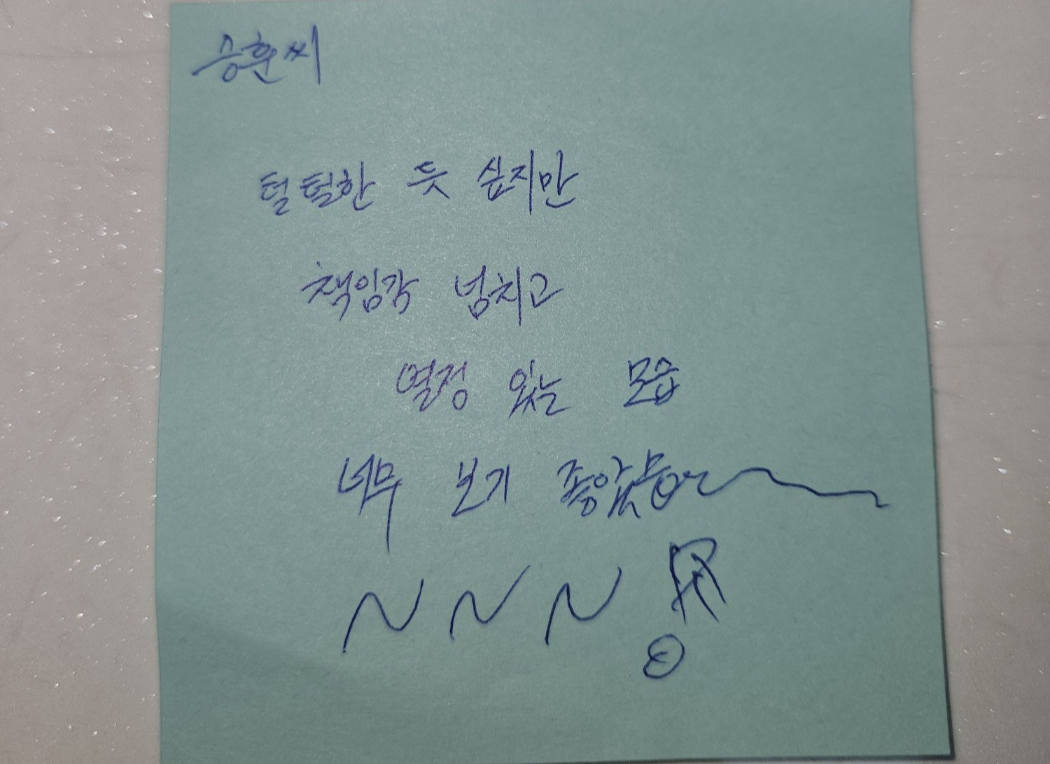 승훈씨
털털한 듯 싶지만
책임감 넘치고
열정 있는 모습
너무 보기 좋았
~ ~ ~ !